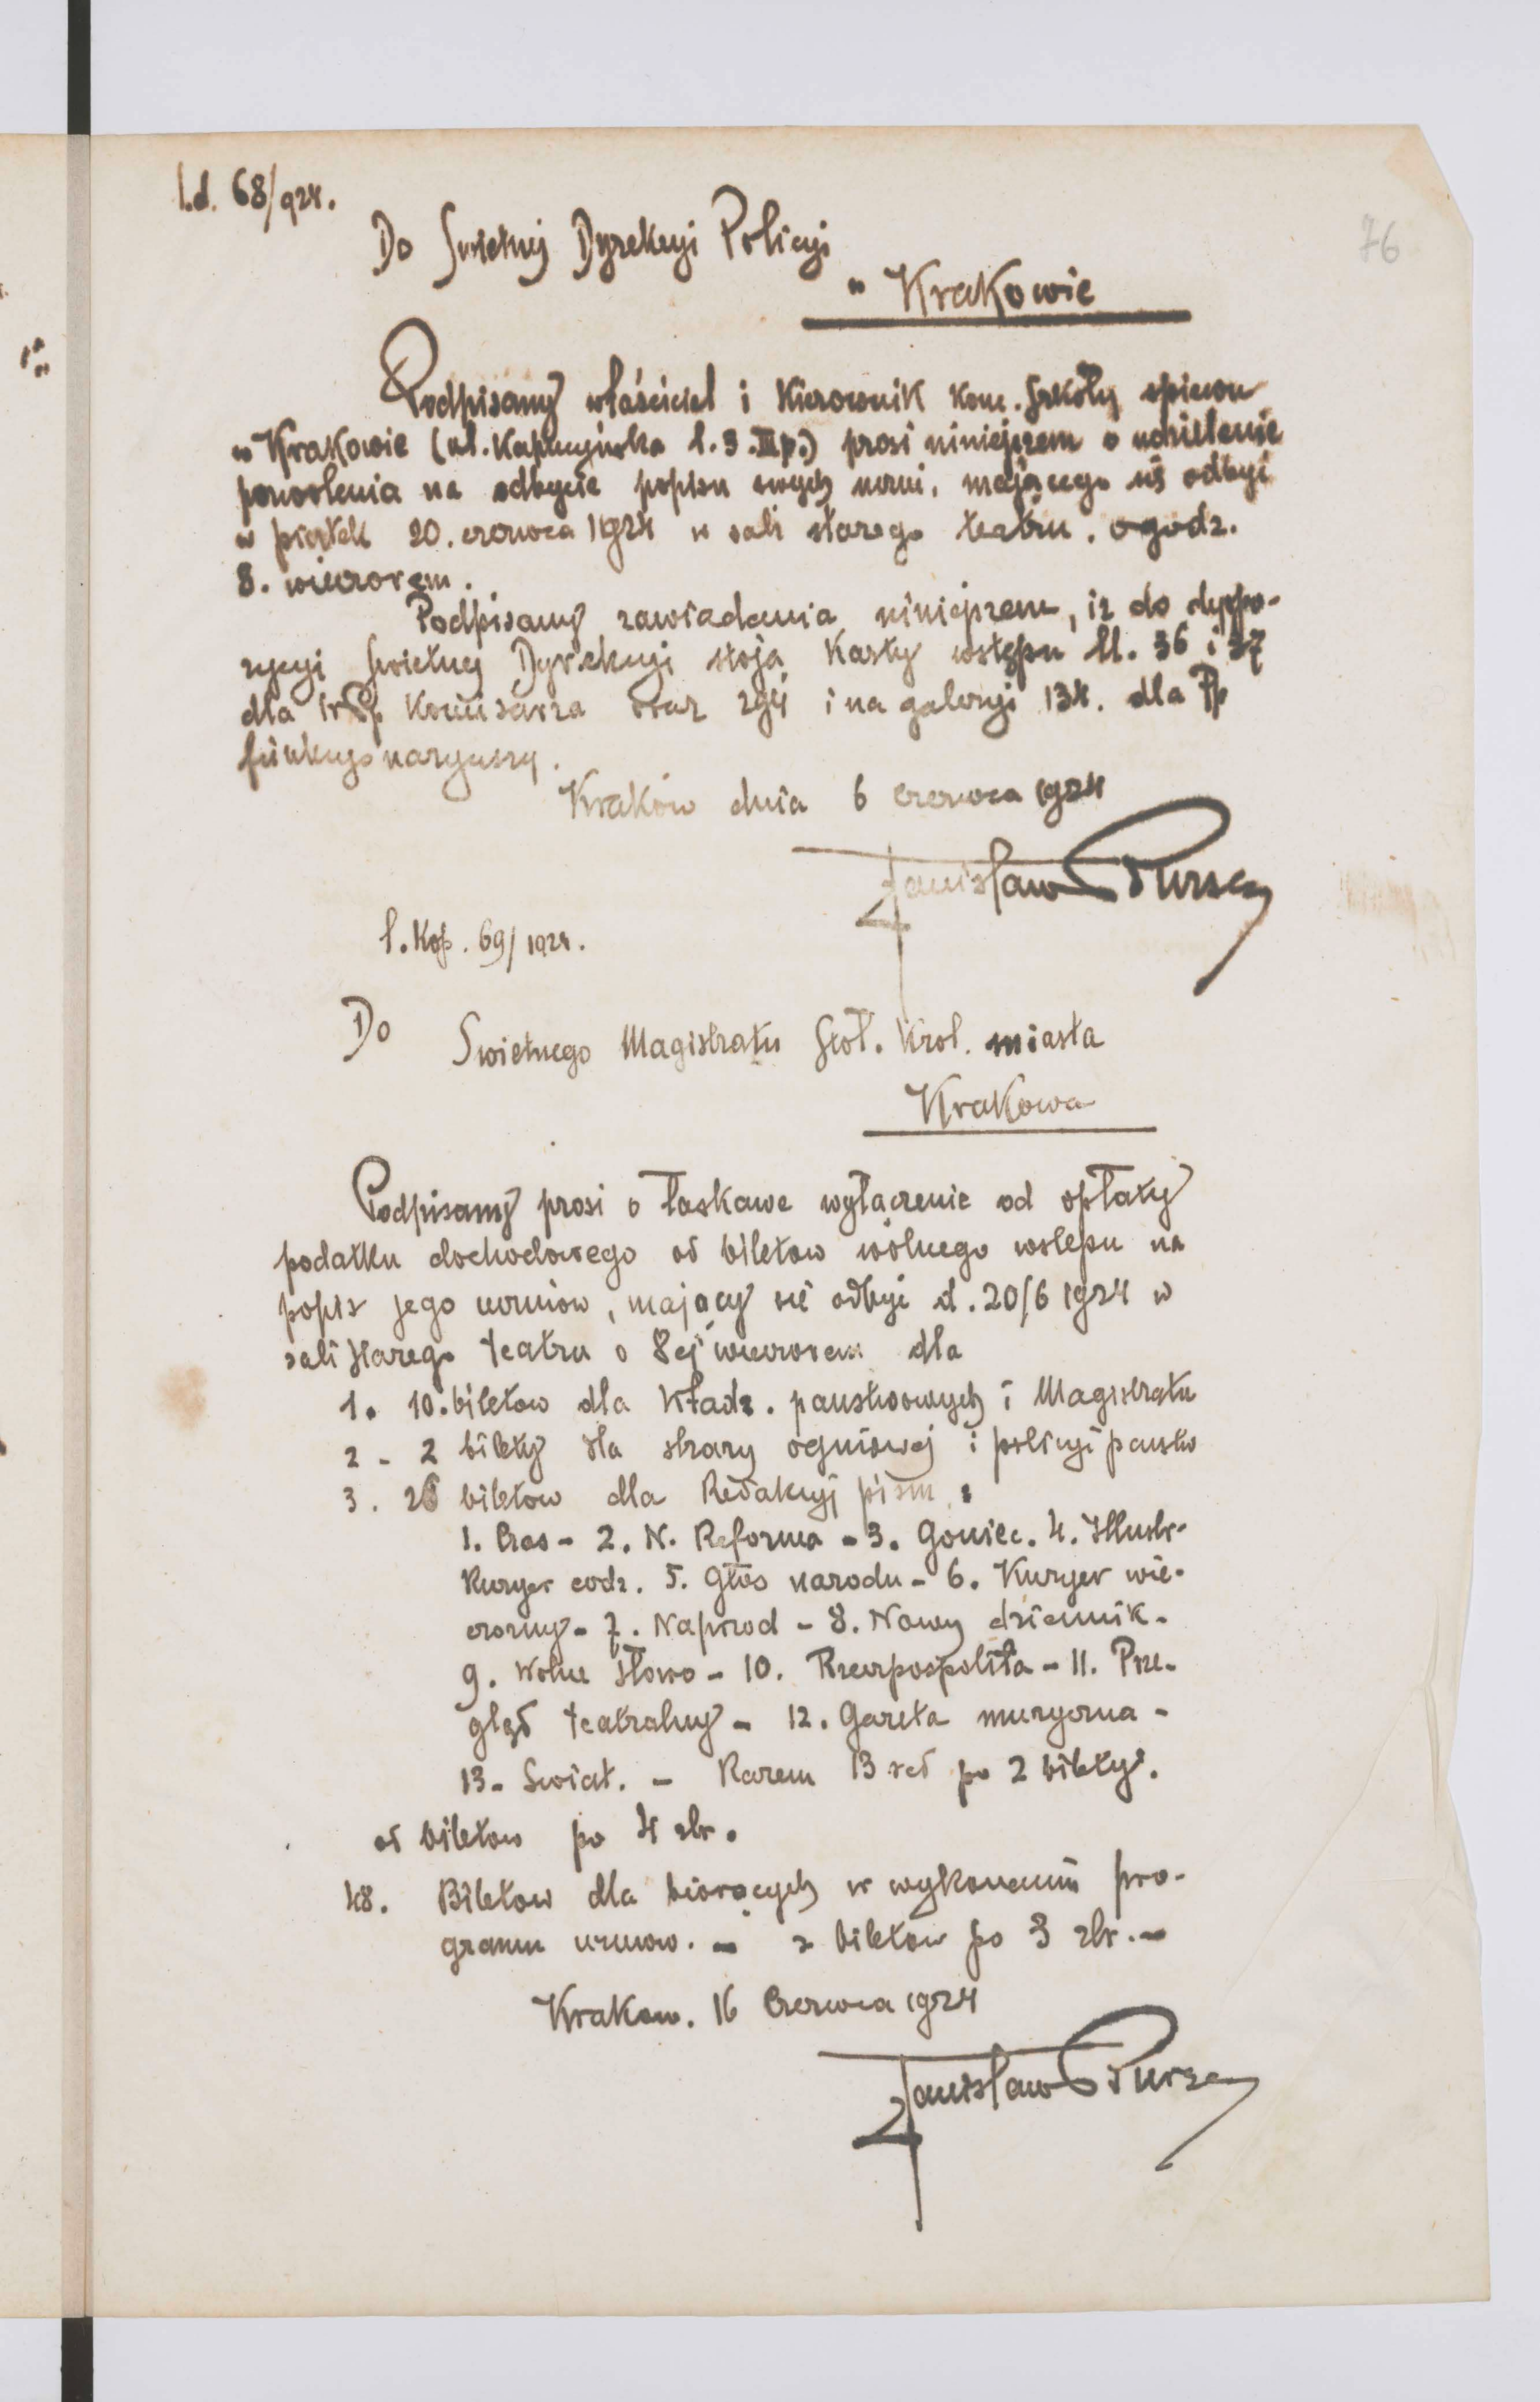 l.d. 68/924.
76
Do Swietnej Dyrekcyi Policyi
w Krakowie
Podpisany właściciel i Kierownik konc. Szkoły spiewu
w Krakowie (ul. Kapucyńska l. 3. III p.) prosi niniejszem o udzielenie
pozwolenia na odbycie popisu swych uczni, mającego się odbyć
w piątek 20. czerwca 1924 w sali starego teatru. o godz.
8. wieczorem.
Podpisany zawiadamia niniejszem, iz do dyspo-
zycyi Swietnej Dyrekcyi stoją Karty wstępu ll. 36 i 37
dla Komisarza oraz i na galeryi 134. dla Pp
funkcyonaryuszy.
Kraków dnia 6 czerwca 1924
Stanisław Bursa
l. Kop. 69/1924.
Do Swietnego Magistratu Stoł. Krol. miasta
Krakowa
Podpisany prosi o łaskawe wyłączenie od opłaty
podatku dochodowego od biletow wolnego wstępu na
popis jego uczniow, mający się odbyć d. 20/6 1924 w
sali Starego teatru o 8ej wieczorem dla
1. 10. biletow dla Władz. panstwowych i Magistratu
2 - 2 bilety dla strazy ogniowej i policyi panstw
3. 26 biletow dla Redakcyj pism :
1. Czas - 2. N. Reforma - 3. Goniec. 4. Illustr-
Kuryer codz. 5. Głos narodu - 6. Kuryer wie-
czorny - 7. Naprzod - 8. Nowy dziennik -
9. Wolne Słowo - 10. Rzeczpospolita - 11. Prze-
gląd teatralny - 12. Gazeta muzyczna -
13 - Swiat. - Razem 13 red po 2 bilety.
od biletow po 4 zlr.
48. Biletow dla biorących w wykonaniu pro-
gramu uczniow. - z biletow po 3 zlr. -
Krakow. 16 Czerwca 1924
Stanisław Bursa